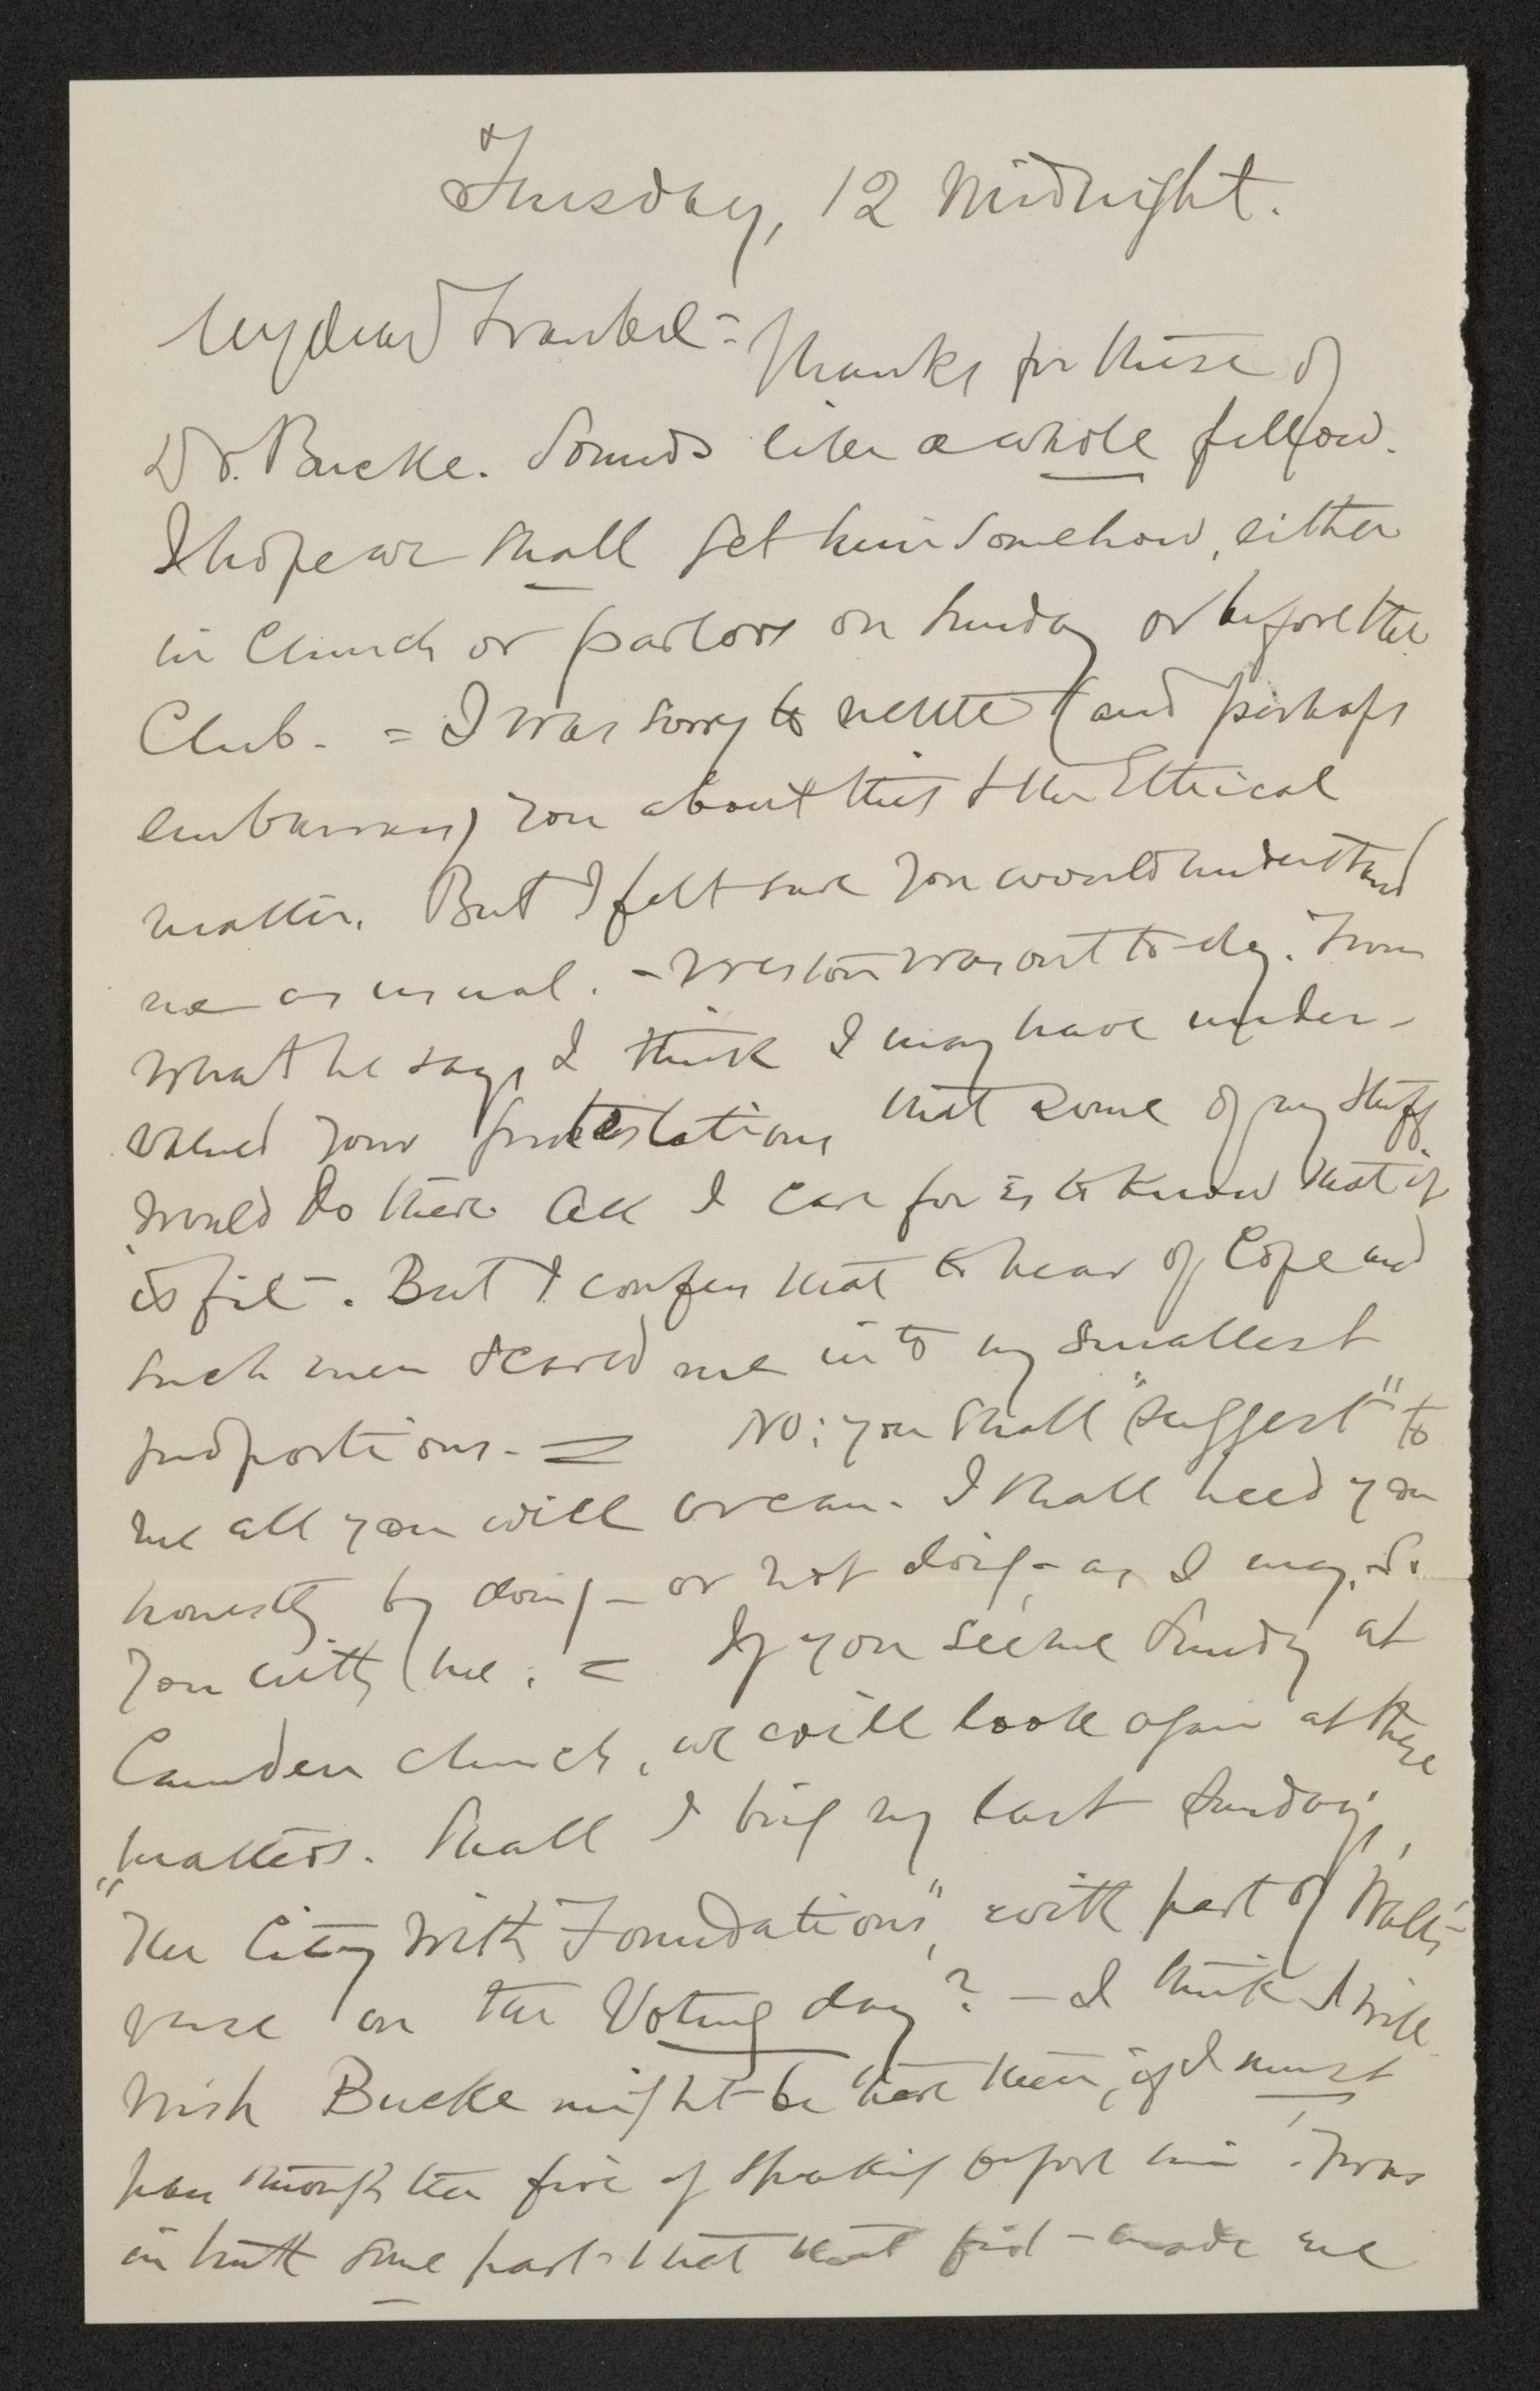 Tuesday, 12 Midnight.
My dear Traubel = Thanks for these of
Dr. Bucke. Sounds like a whole fellow.
I hope we shall get him somehow, either
in Church or parlors on Sunday or before the
Club. = I was sorry to nettle (and perhaps
embarrass) you about this & the Ethical
matter. But I felt sure you would understand
me as usual. - Weston was out to-day. From
what he says I think I may have under-
valued your protestations that some of my stuff
would do there. All I care for is to know that it
is fit. But I confess that to hear of Cope and
such men scared me into my smallest
proportions. = No: you shall "suggest" to
me all you will or can. I shall heed you
honestly by doing - or not doing - as I may. So
you with me. = If you see me Sunday at
Camden church, we will look again at these
matters. Shall I bring my last Sunday's,
"The City With Foundations", with part of Walt's
verse on the Voting day? - I think I will.
Wish Bucke might be here then, if I must
pass through the fire of speaking before him. 'Twas
in truth some part that that first - made me